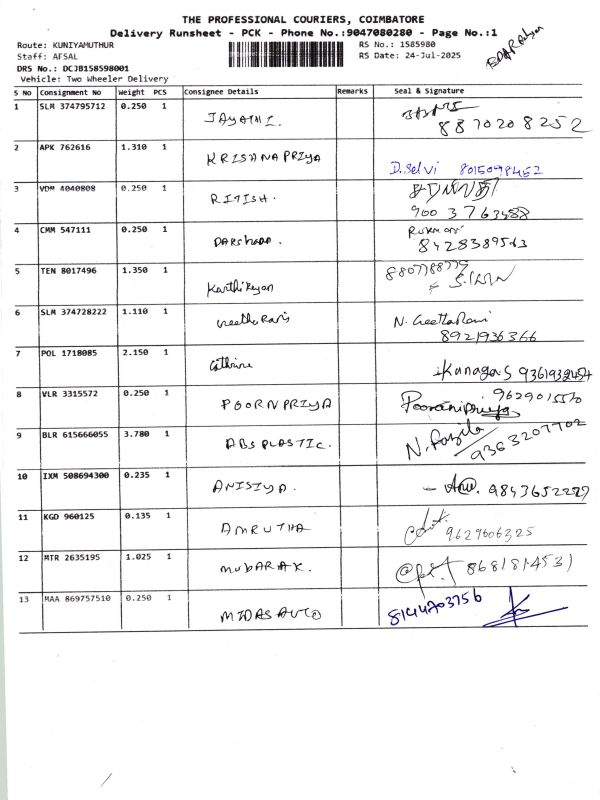 THE PROFESSIONAL COURIERS, COIMBATORE
Delivery Runsheet - PCK - Phone No.:9047080280 - Page No.:1
Route: KUNIYAMUTHUR RS No.: 1585980
Staff: AFSAL RS Date: 24-Jul-2025
DRS No.: DCJB158598001
Vehicle: Two Wheeler Delivery
S No Consignment No Weight PCS Consignee Details Remarks Seal & Signature
1 SLM 374795712 0.250 1 JAYATHI.
8870208252
2 APK 762616 1.310 1 KRISHNAPRIYA
D. Selvi 8015098452
3 VDM 4040808 0.250 1 RITISH.
900 3763488
4 CMM 547111 0.250 1 DARSHAAA.
8428389513
5 TEN 8017496 1.350 1 Karthikeyan
6 SLM 374728222 1.110 1 Geetha Rani
N. GeethaRani
8921936366
7 POL 1718085 2.150 1 Cathrine
Kanaga S
8 VLR 3315572 0.250 1 POORNPRIYA
Pooranipriya
9 BLR 615666055 3.780 1 ABS PLASTIC.
N. Fazila
9363207702
10 IXM 508694300 0.235 1 ANISIYA.
9843652227
11 KGD 960125 0.135 1 AMRUTHA
9629606325
12 MTR 2635195 1.025 1 MUBARAK.
8681814531
13 MAA 869757510 0.250 1 MIDAS AUTO
8144703756